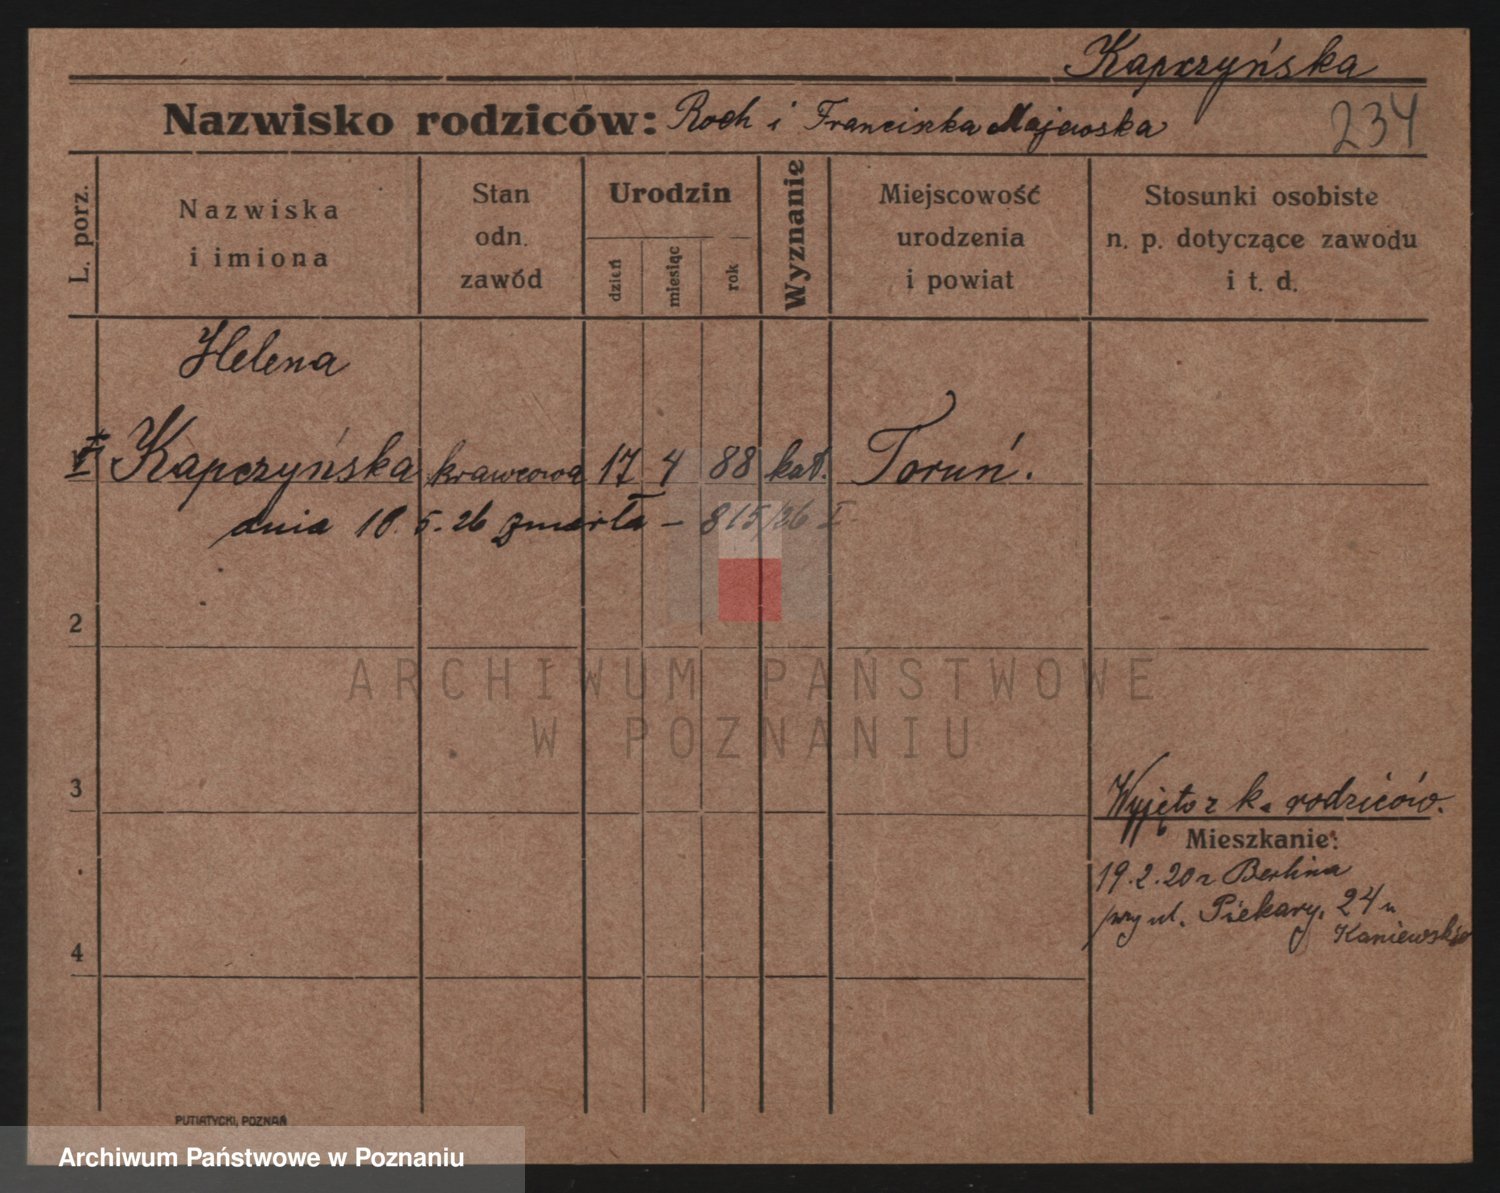 Kapczyńska
Nazwisko rodziców: Roch i Franciszka Majewska
234
L. porz.
Nazwiska
i imiona
Stan
odn.
zawód
Urodzin
dzień
miesiąc
rok
Wyznanie
Miejscowość
urodzenia
i powiat
Stosunki osobiste
n. p. dotyczące zawodu
i t. d.
Helena
Kapczyńska krawcowa 17 4 88 kat. Toruń.
dnia 18. 5. 26 zmarła — 815/26 I
2
ARCHIWUM PAŃSTWOWE
W POZNANIU
3
Wyjęto z k. rodziców.
Mieszkanie:
19.2.20 z Berlina
przy ul. Piekary, 24 u
4
PUTIATYCKI, POZNAŃ
Archiwum Państwowe w Poznaniu